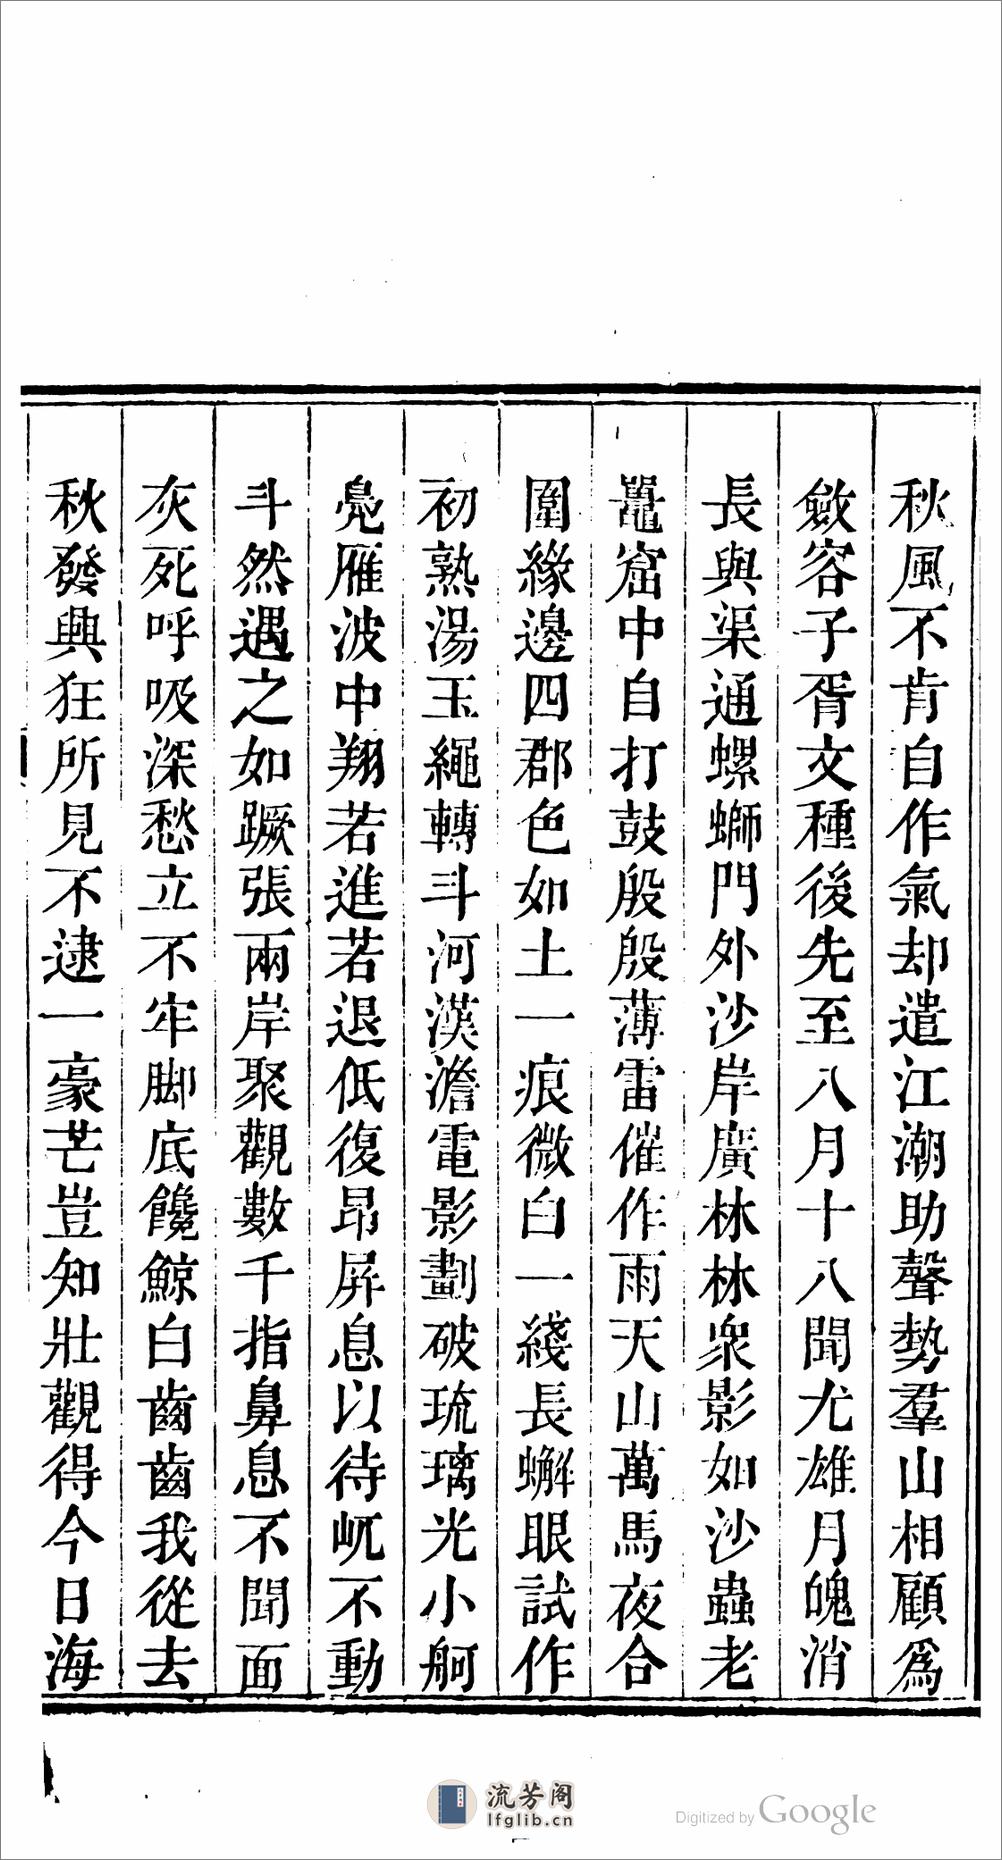 秋風不肯自作氣却遣江潮助聲勢羣山相顧爲
斂容子胥文種後先至八月十八聞尤雄月魄消
長與渠通螺螄門外沙岸廣林林衆影如沙蟲老
鼉窟中自打鼓殷殷薄雷催作雨天山萬馬夜合
圍緣邊四郡色如土一痕微白一綫長蠏眼試作
初熟湯玉繩轉斗河漢澹電影劃破琉璃光小舸
鳧雁波中翔若進若退低復昂屏息以待屹不動
斗然遇之如蹶張兩岸聚觀數千指鼻息不聞面
灰死呼吸深愁立不牢脚底饞鯨白齒齒我從去
秋發興狂所見不逮一豪芒豈知壯觀得今日海
流芳阁
lfglib.cn
Digitized by Google